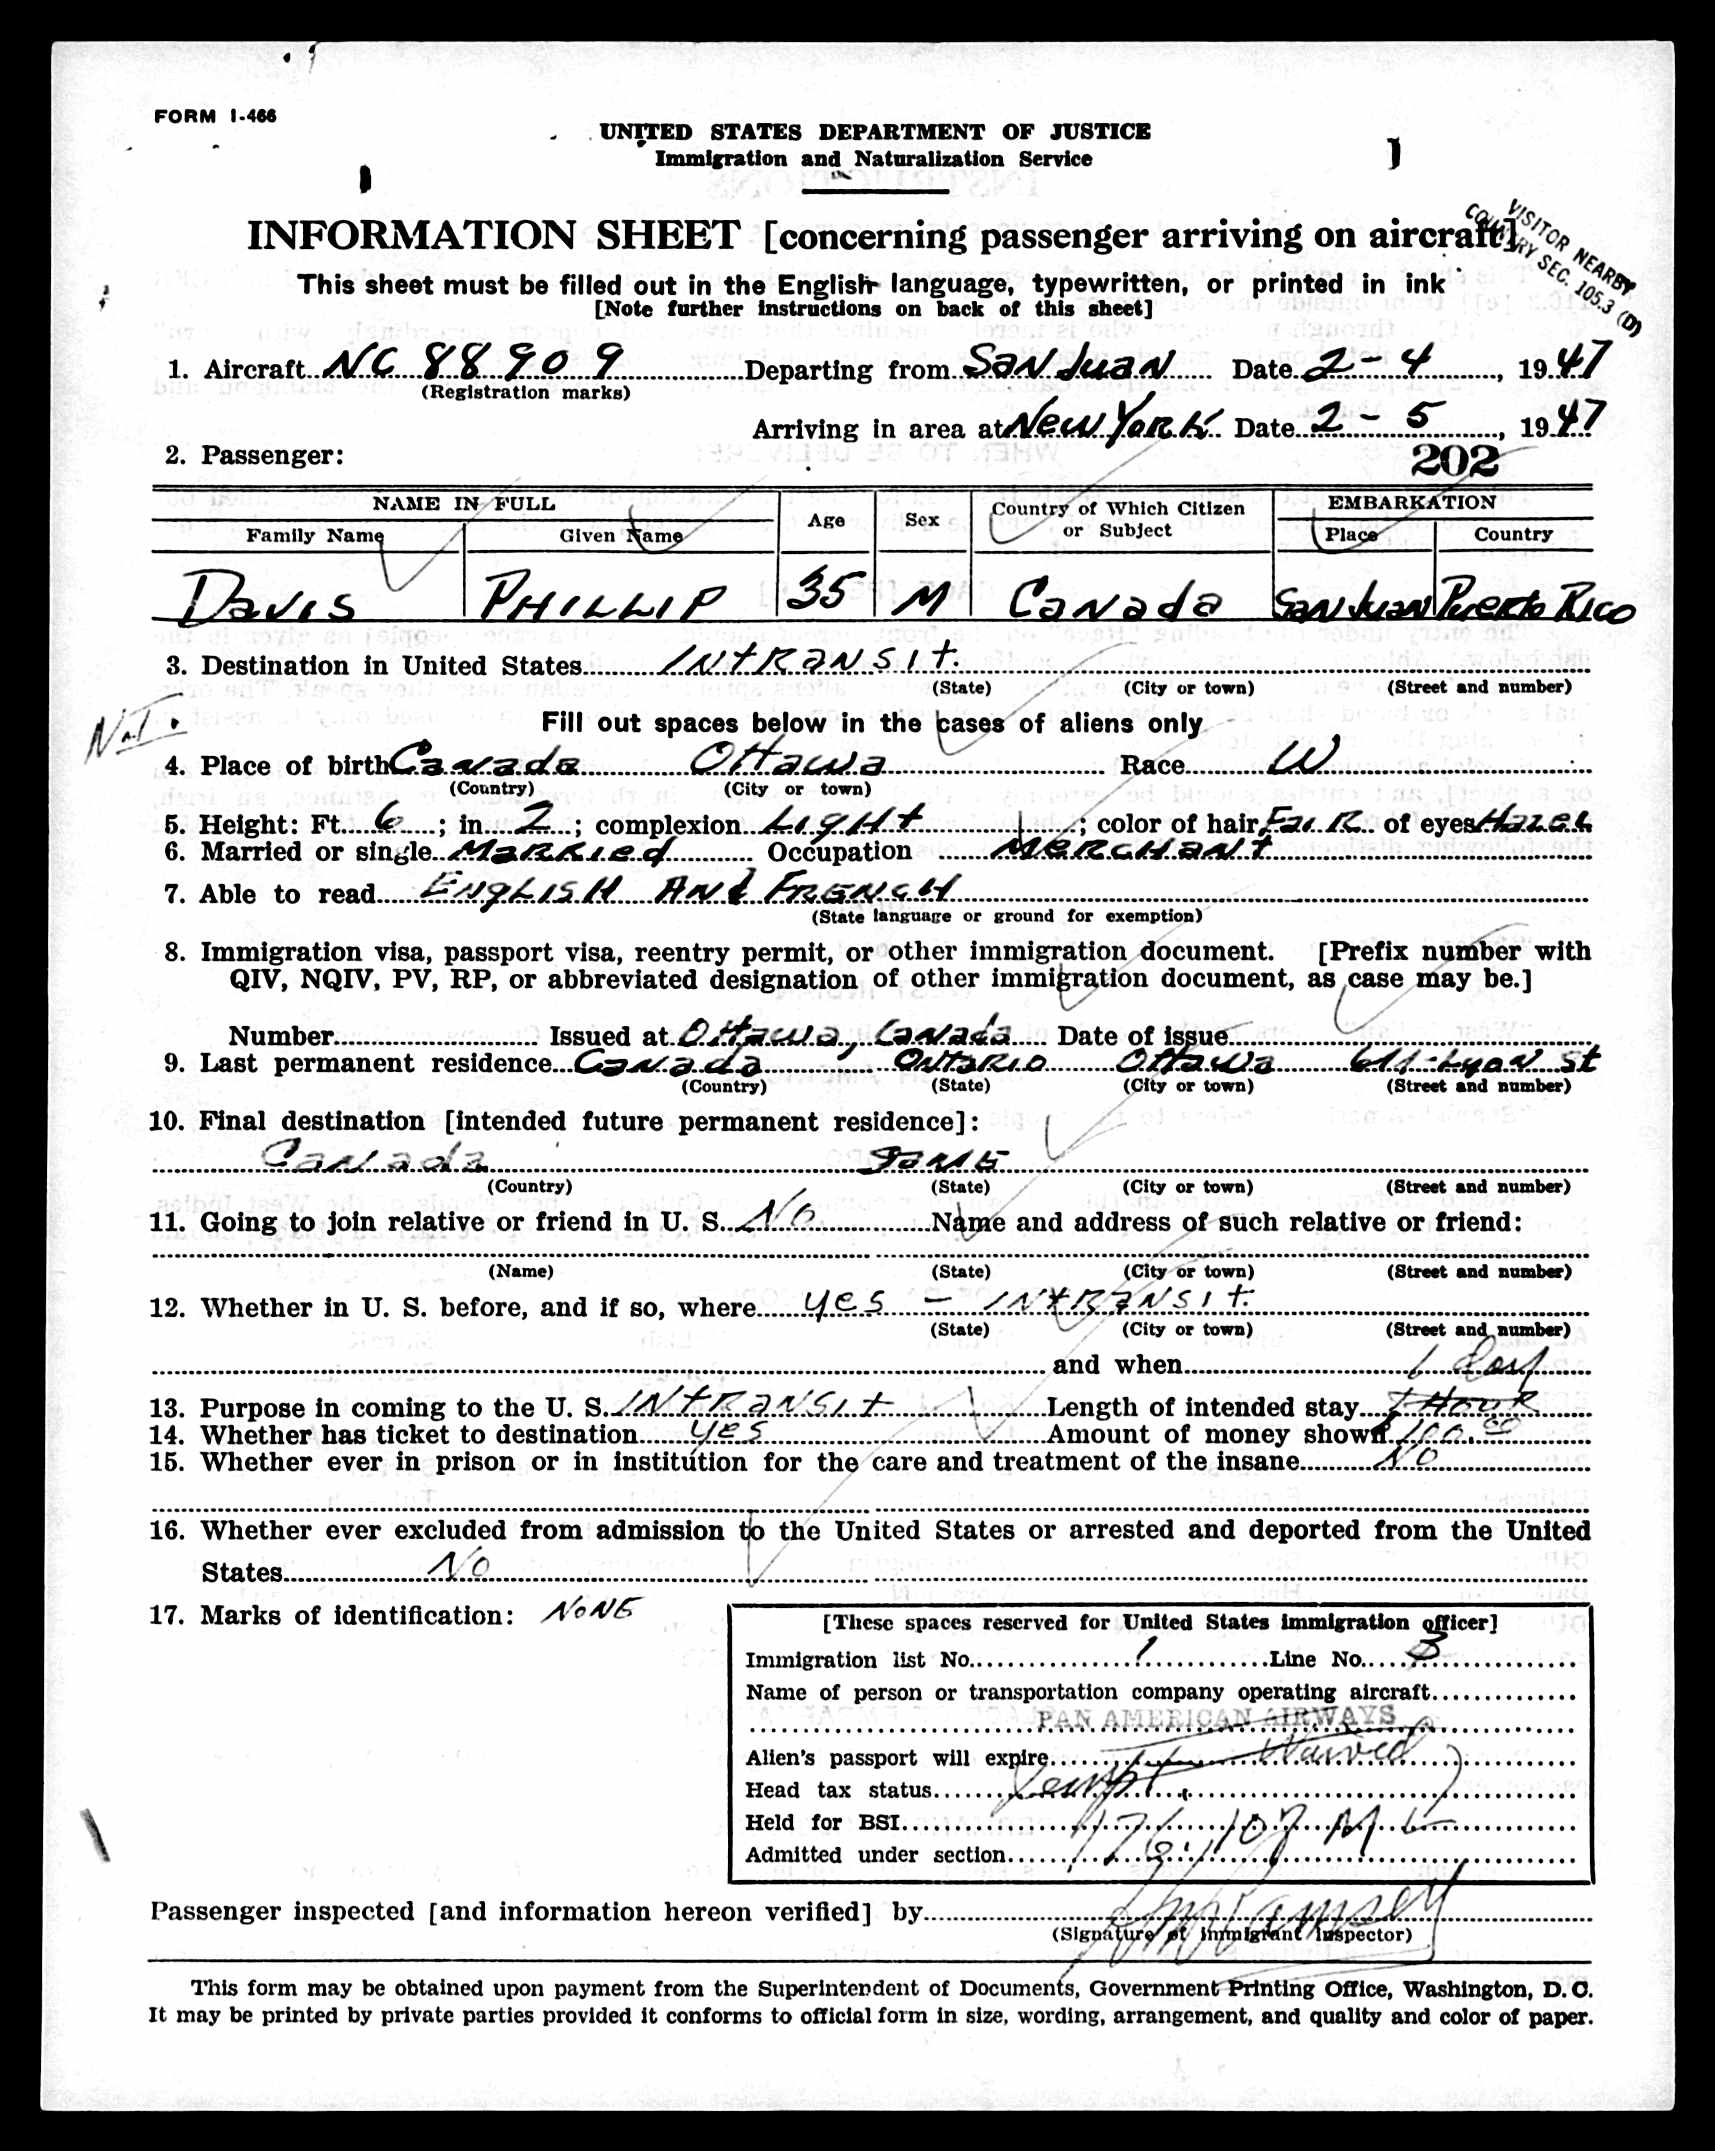 FORM I-466
UNITED STATES DEPARTMENT OF JUSTICE
Immigration and Naturalization Service
INFORMATION SHEET [concerning passenger arriving on aircraft]
VISITOR NEARBY
COUNTRY SEC. 105.3 (D)
This sheet must be filled out in the English language, typewritten, or printed in ink
[Note further instructions on back of this sheet]
1. Aircraft NC 88909 Departing from San Juan Date 2-4, 1947
(Registration marks)
Arriving in area at New York Date 2-5, 1947
2. Passenger: 202
NAME IN FULL Age Sex Country of Which Citizen or Subject EMBARKATION
Family Name Given Name Place Country
Davis PHILLIP 35 M Canada San Juan Puerto Rico
3. Destination in United States INtRANSit.
(State) (City or town) (Street and number)
N.I.
Fill out spaces below in the cases of aliens only
4. Place of birth Canada Ottawa Race W
(Country) (City or town)
5. Height: Ft. 6; in. 2; complexion Light; color of hair Fair of eyes Hazel
6. Married or single Married Occupation Merchant
7. Able to read ENgLISH ANd FRENCH
(State language or ground for exemption)
8. Immigration visa, passport visa, reentry permit, or other immigration document. [Prefix number with
QIV, NQIV, PV, RP, or abbreviated designation of other immigration document, as case may be.]
Number Issued at Ottawa, Canada Date of issue
9. Last permanent residence Canada Ontario Ottawa 611-Lyon St
(Country) (State) (City or town) (Street and number)
10. Final destination [intended future permanent residence]:
Canada Same
(Country) (State) (City or town) (Street and number)
11. Going to join relative or friend in U. S. No Name and address of such relative or friend:
(Name) (State) (City or town) (Street and number)
12. Whether in U. S. before, and if so, where yes - INtRANSit.
(State) (City or town) (Street and number)
and when
1 day
13. Purpose in coming to the U. S. INtRANSit Length of intended stay 1 Hour
14. Whether has ticket to destination yes Amount of money shown $100.00
15. Whether ever in prison or in institution for the care and treatment of the insane No
16. Whether ever excluded from admission to the United States or arrested and deported from the United
States No
17. Marks of identification: NONE
[These spaces reserved for United States immigration officer]
Immigration list No. 1 Line No. 3
Name of person or transportation company operating aircraft
PAN AMERICAN AIRWAYS
Alien's passport will expire Waived
Head tax status
Held for BSI
Admitted under section
Passenger inspected [and information hereon verified] by Ramsey
(Signature of immigrant inspector)
This form may be obtained upon payment from the Superintendent of Documents, Government Printing Office, Washington, D. C.
It may be printed by private parties provided it conforms to official form in size, wording, arrangement, and quality and color of paper.